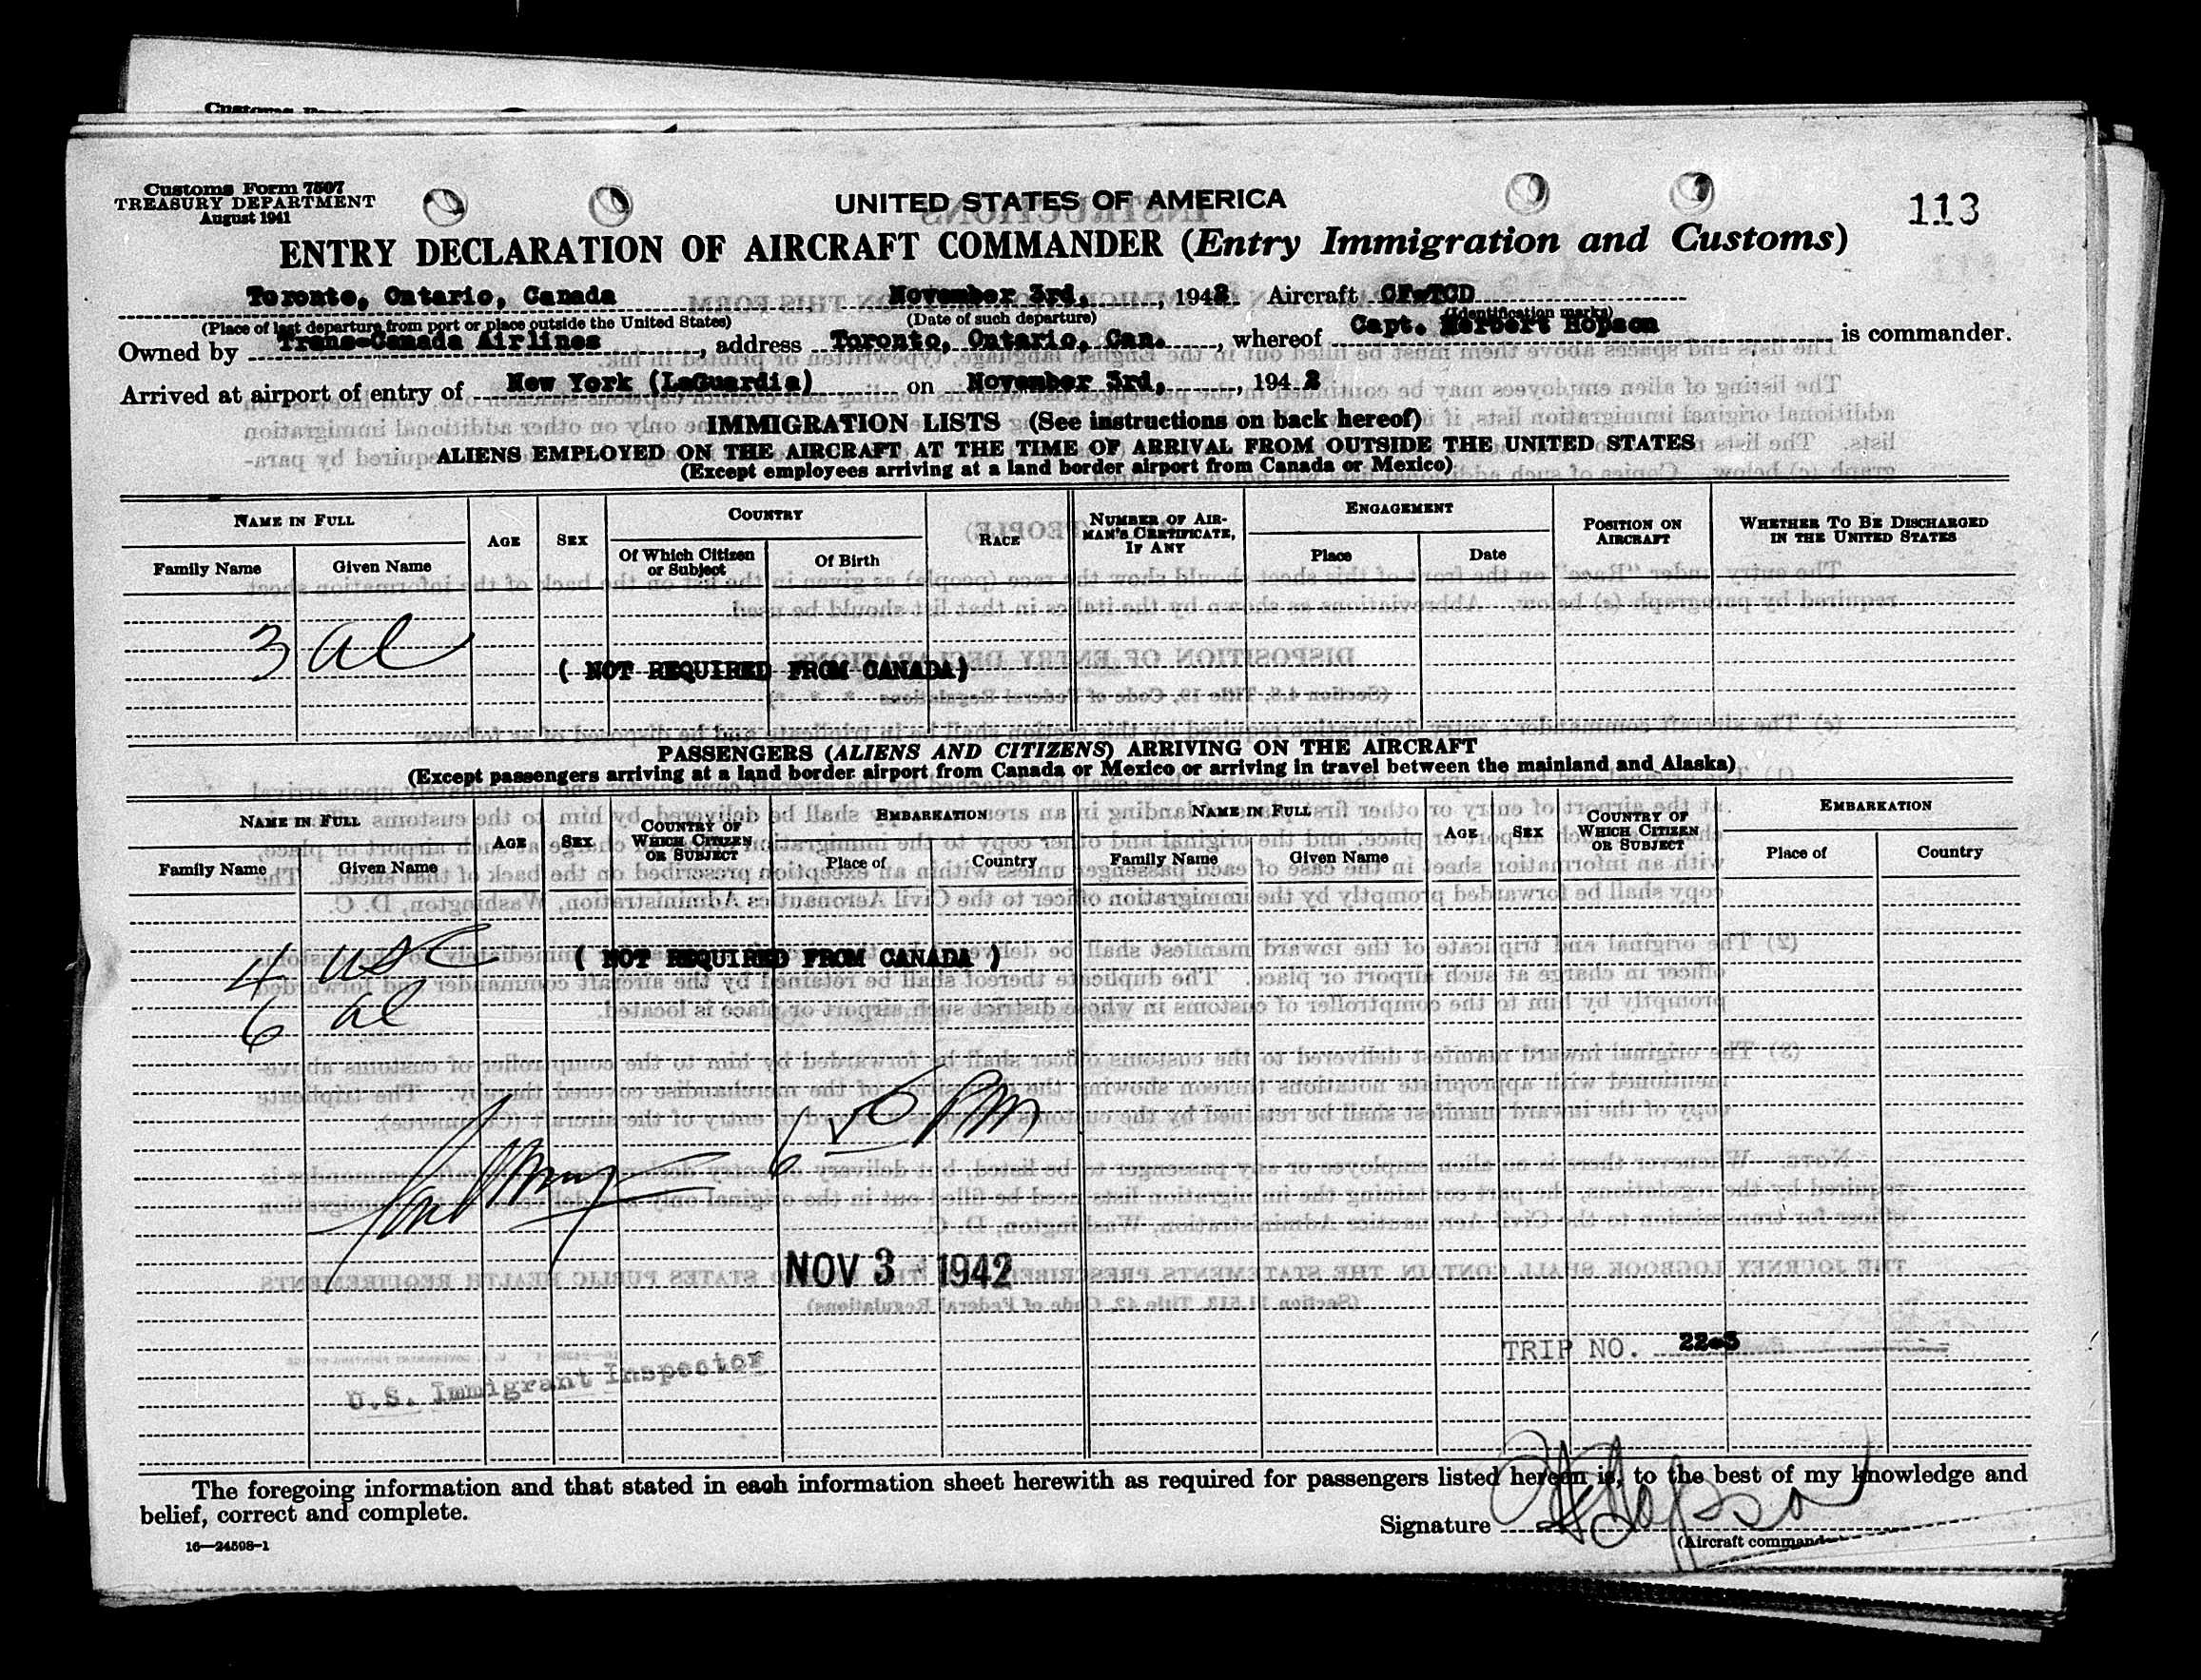 Customs Form 7507
TREASURY DEPARTMENT
August 1941
UNITED STATES OF AMERICA
113
ENTRY DECLARATION OF AIRCRAFT COMMANDER (Entry Immigration and Customs)
Toronto, Ontario, Canada, November 3rd, 1942 Aircraft CF-TCD
(Place of last departure from port or place outside the United States) (Date of such departure) (Identification marks)
Owned by Trans-Canada Airlines, address Toronto, Ontario, Can., whereof Capt. Herbert Hopson is commander.
Arrived at airport of entry of New York (LaGuardia) on November 3rd, 1942
IMMIGRATION LISTS (See instructions on back hereof)
ALIENS EMPLOYED ON THE AIRCRAFT AT THE TIME OF ARRIVAL FROM OUTSIDE THE UNITED STATES
(Except employees arriving at a land border airport from Canada or Mexico)
NAME IN FULL AGE SEX COUNTRY RACE NUMBER OF AIRMAN'S CERTIFICATE, IF ANY ENGAGEMENT POSITION ON AIRCRAFT WHETHER TO BE DISCHARGED IN THE UNITED STATES
Family Name Given Name Of Which Citizen or Subject Of Birth Place Date
3 al
( NOT REQUIRED FROM CANADA)
PASSENGERS (ALIENS AND CITIZENS) ARRIVING ON THE AIRCRAFT
(Except passengers arriving at a land border airport from Canada or Mexico or arriving in travel between the mainland and Alaska)
NAME IN FULL AGE SEX COUNTRY OF WHICH CITIZEN OR SUBJECT EMBARKATION NAME IN FULL AGE SEX COUNTRY OF WHICH CITIZEN OR SUBJECT EMBARKATION
Family Name Given Name Place of Country Family Name Given Name Place of Country
4 USC ( NOT REQUIRED FROM CANADA )
6 al
PM
NOV 3 - 1942
TRIP NO. 22-3
U.S. Immigrant Inspector
The foregoing information and that stated in each information sheet herewith as required for passengers listed hereon is, to the best of my knowledge and
belief, correct and complete.
Signature H Hopson
(Aircraft commander)
16—24598-1